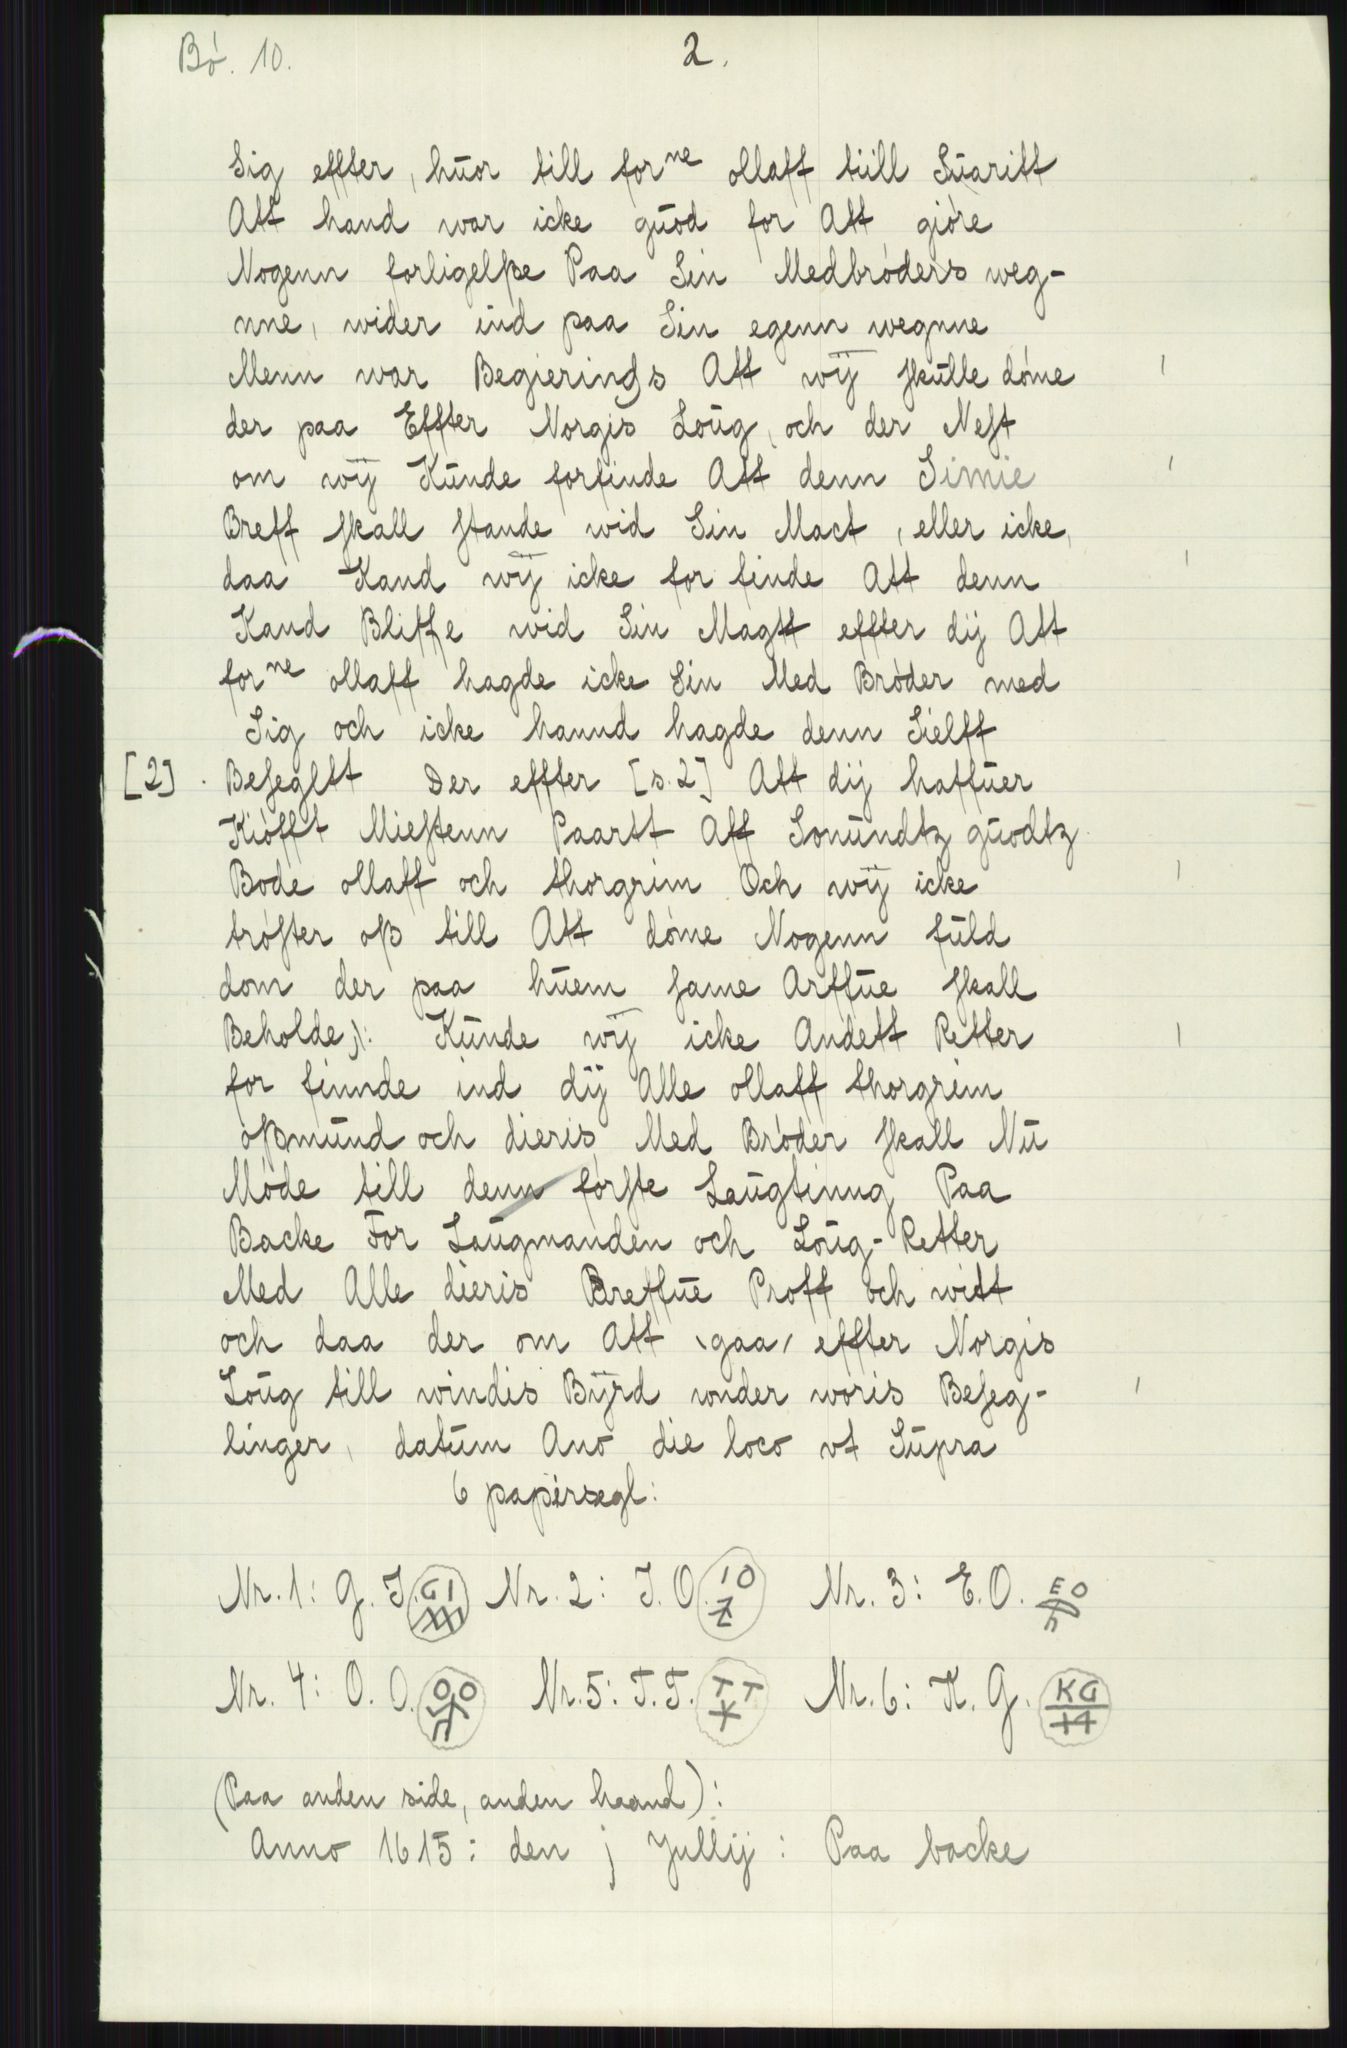 Bó. 10.
2.
Sig effter, huor till forne ollaff tiill Suaritt
Att hand war icke guod for Att gióre
Nogenn forligelße Paa Sin Medbróders weg-
nne, wider ind paa Sin egenn wegnne
Menn war Begierings Att wÿ skulle dóme
der paa Effter Norgis Loug, och der Nest
om wÿ Kunde forfinde Att denn Simie
Breff skall stande wid Sin Mact, eller icke,
daa Kand wÿ icke for finde Att denn
Kand Bliffe wid Sin Magtt effter dij Att
forne ollaff hagde icke Sin Med Bróder med
Sig och icke hannd hagde denn Sielff
[2] Besegltt Der effter [s.2] Att dij haffuer
Kiófft Miestenn Paartt Aff Sonundtz guodtz
Bode ollaff och thorgrim Och wÿ icke
tróster oß till Att dóme Nogenn fuld
dom der paa huem same Arffue skall
Beholde,): Kunde wÿ icke Andett Retter
for finnde ind dÿ Alle ollaff thorgrim
oßmund och dieris Med Bróder skall Nu
Móde till denn fórste Laugtinng Paa
Backe For Laugmanden och Loug-Retter
Med Alle dieris Breffue Proff och witt
och daa der om Att gaa effter Norgis
Loug till windis Bÿrd wnder woris Beseg-
linger, datum Ano die loco vt Supra
6 papirsegl:
Nr. 1: G. I. GI Nr. 2: I. O. IO Nr. 3: E. O. EO
Nr. 4: O. O. OO Nr. 5: T. T. TT Nr. 6: K. G. KG
(Paa anden side, anden haand):
Anno 1615: den j Jullij: Paa backe